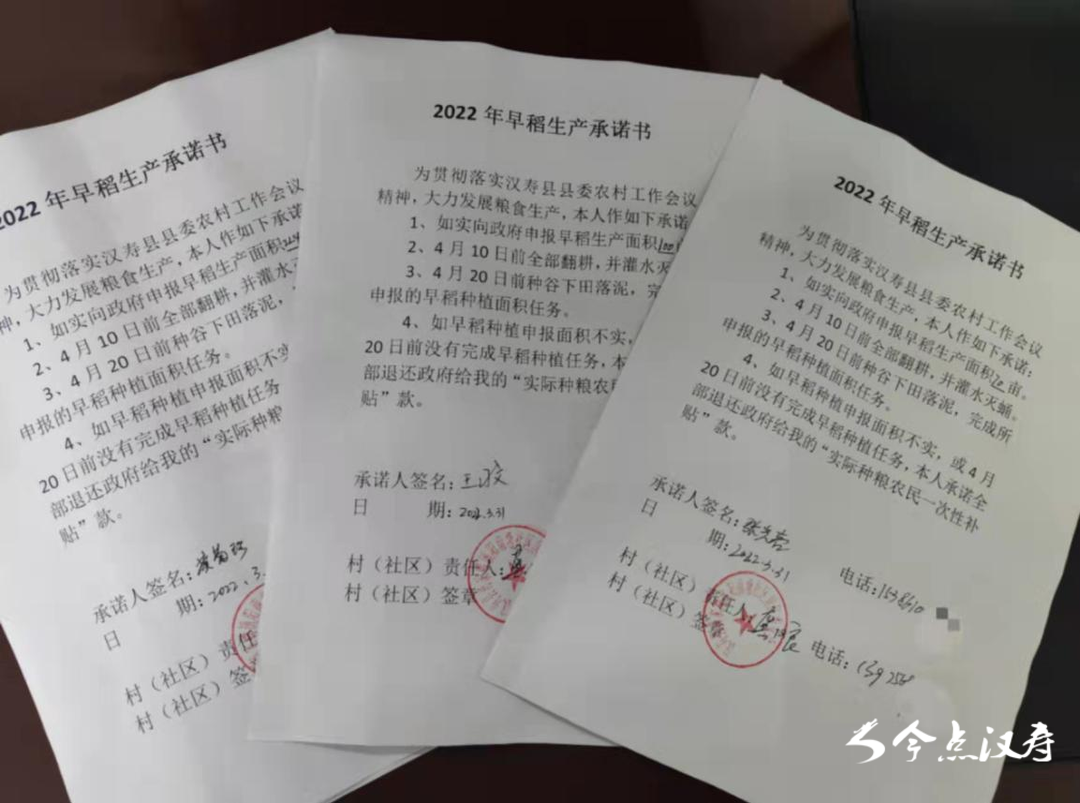 2022年早稻生产承诺书
为贯彻落实汉寿县县委农村工作会议
神，大力发展粮食生产，本人作如下承诺
1、如实向政府申报早稻生产面积
2、4月10日前全部翻耕，并灌水灭
3、4月20日前种谷下田落泥，
申报的早稻种植面积任务。
4、如早稻种植申报面积不实
20日前没有完成早稻种植任务
部退还政府给我的“实际种粮
贴”款。
承诺人签名：
日 期：2022.3.
村（社区）责任
村（社区）签
2022年早稻生产承诺书
为贯彻落实汉寿县县委农村工作会议
精神，大力发展粮食生产，本人作如下承诺
1、如实向政府申报早稻生产面积100亩
2、4月10日前全部翻耕，并灌水灭
3、4月20日前种谷下田落泥，完
申报的早稻种植面积任务。
4、如早稻种植申报面积不实，
20日前没有完成早稻种植任务，本
部退还政府给我的“实际种粮农民
贴”款。
承诺人签名：王
日 期：2022.3.31
村（社区）责任人：
村（社区）签章
2022年早稻生产承诺书
为贯彻落实汉寿县县委农村工作会议
精神，大力发展粮食生产，本人作如下承诺：
1、如实向政府申报早稻生产面积 亩。
2、4月10日前全部翻耕，并灌水灭蛹。
3、4月20日前种谷下田落泥，完成所
申报的早稻种植面积任务。
4、如早稻种植申报面积不实，或4月
20日前没有完成早稻种植任务，本人承诺全
部退还政府给我的“实际种粮农民一次性补
贴”款。
承诺人签名：张 电话：
日 期：2022.3.31
村（社区）责任人： 电话：
村（社区）签章
今点汉寿